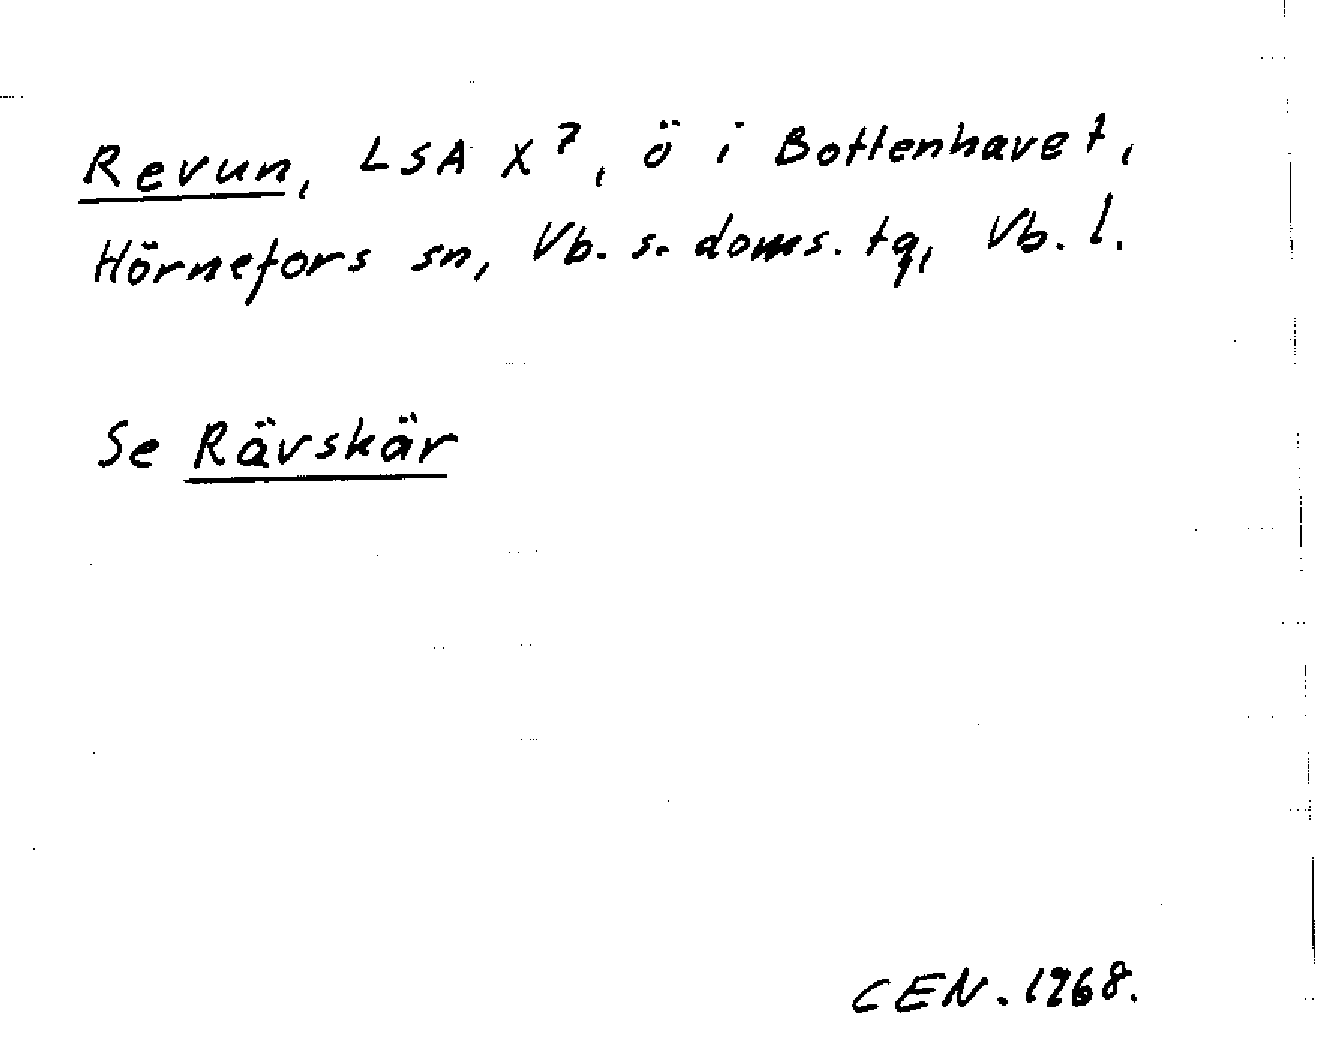 Revun, LSA X⁷, ö i Bottenhavet,
Hörnefors sn, Vb. s. doms. tg, Vb. l.
Se Rävskär
CEN. 1968.